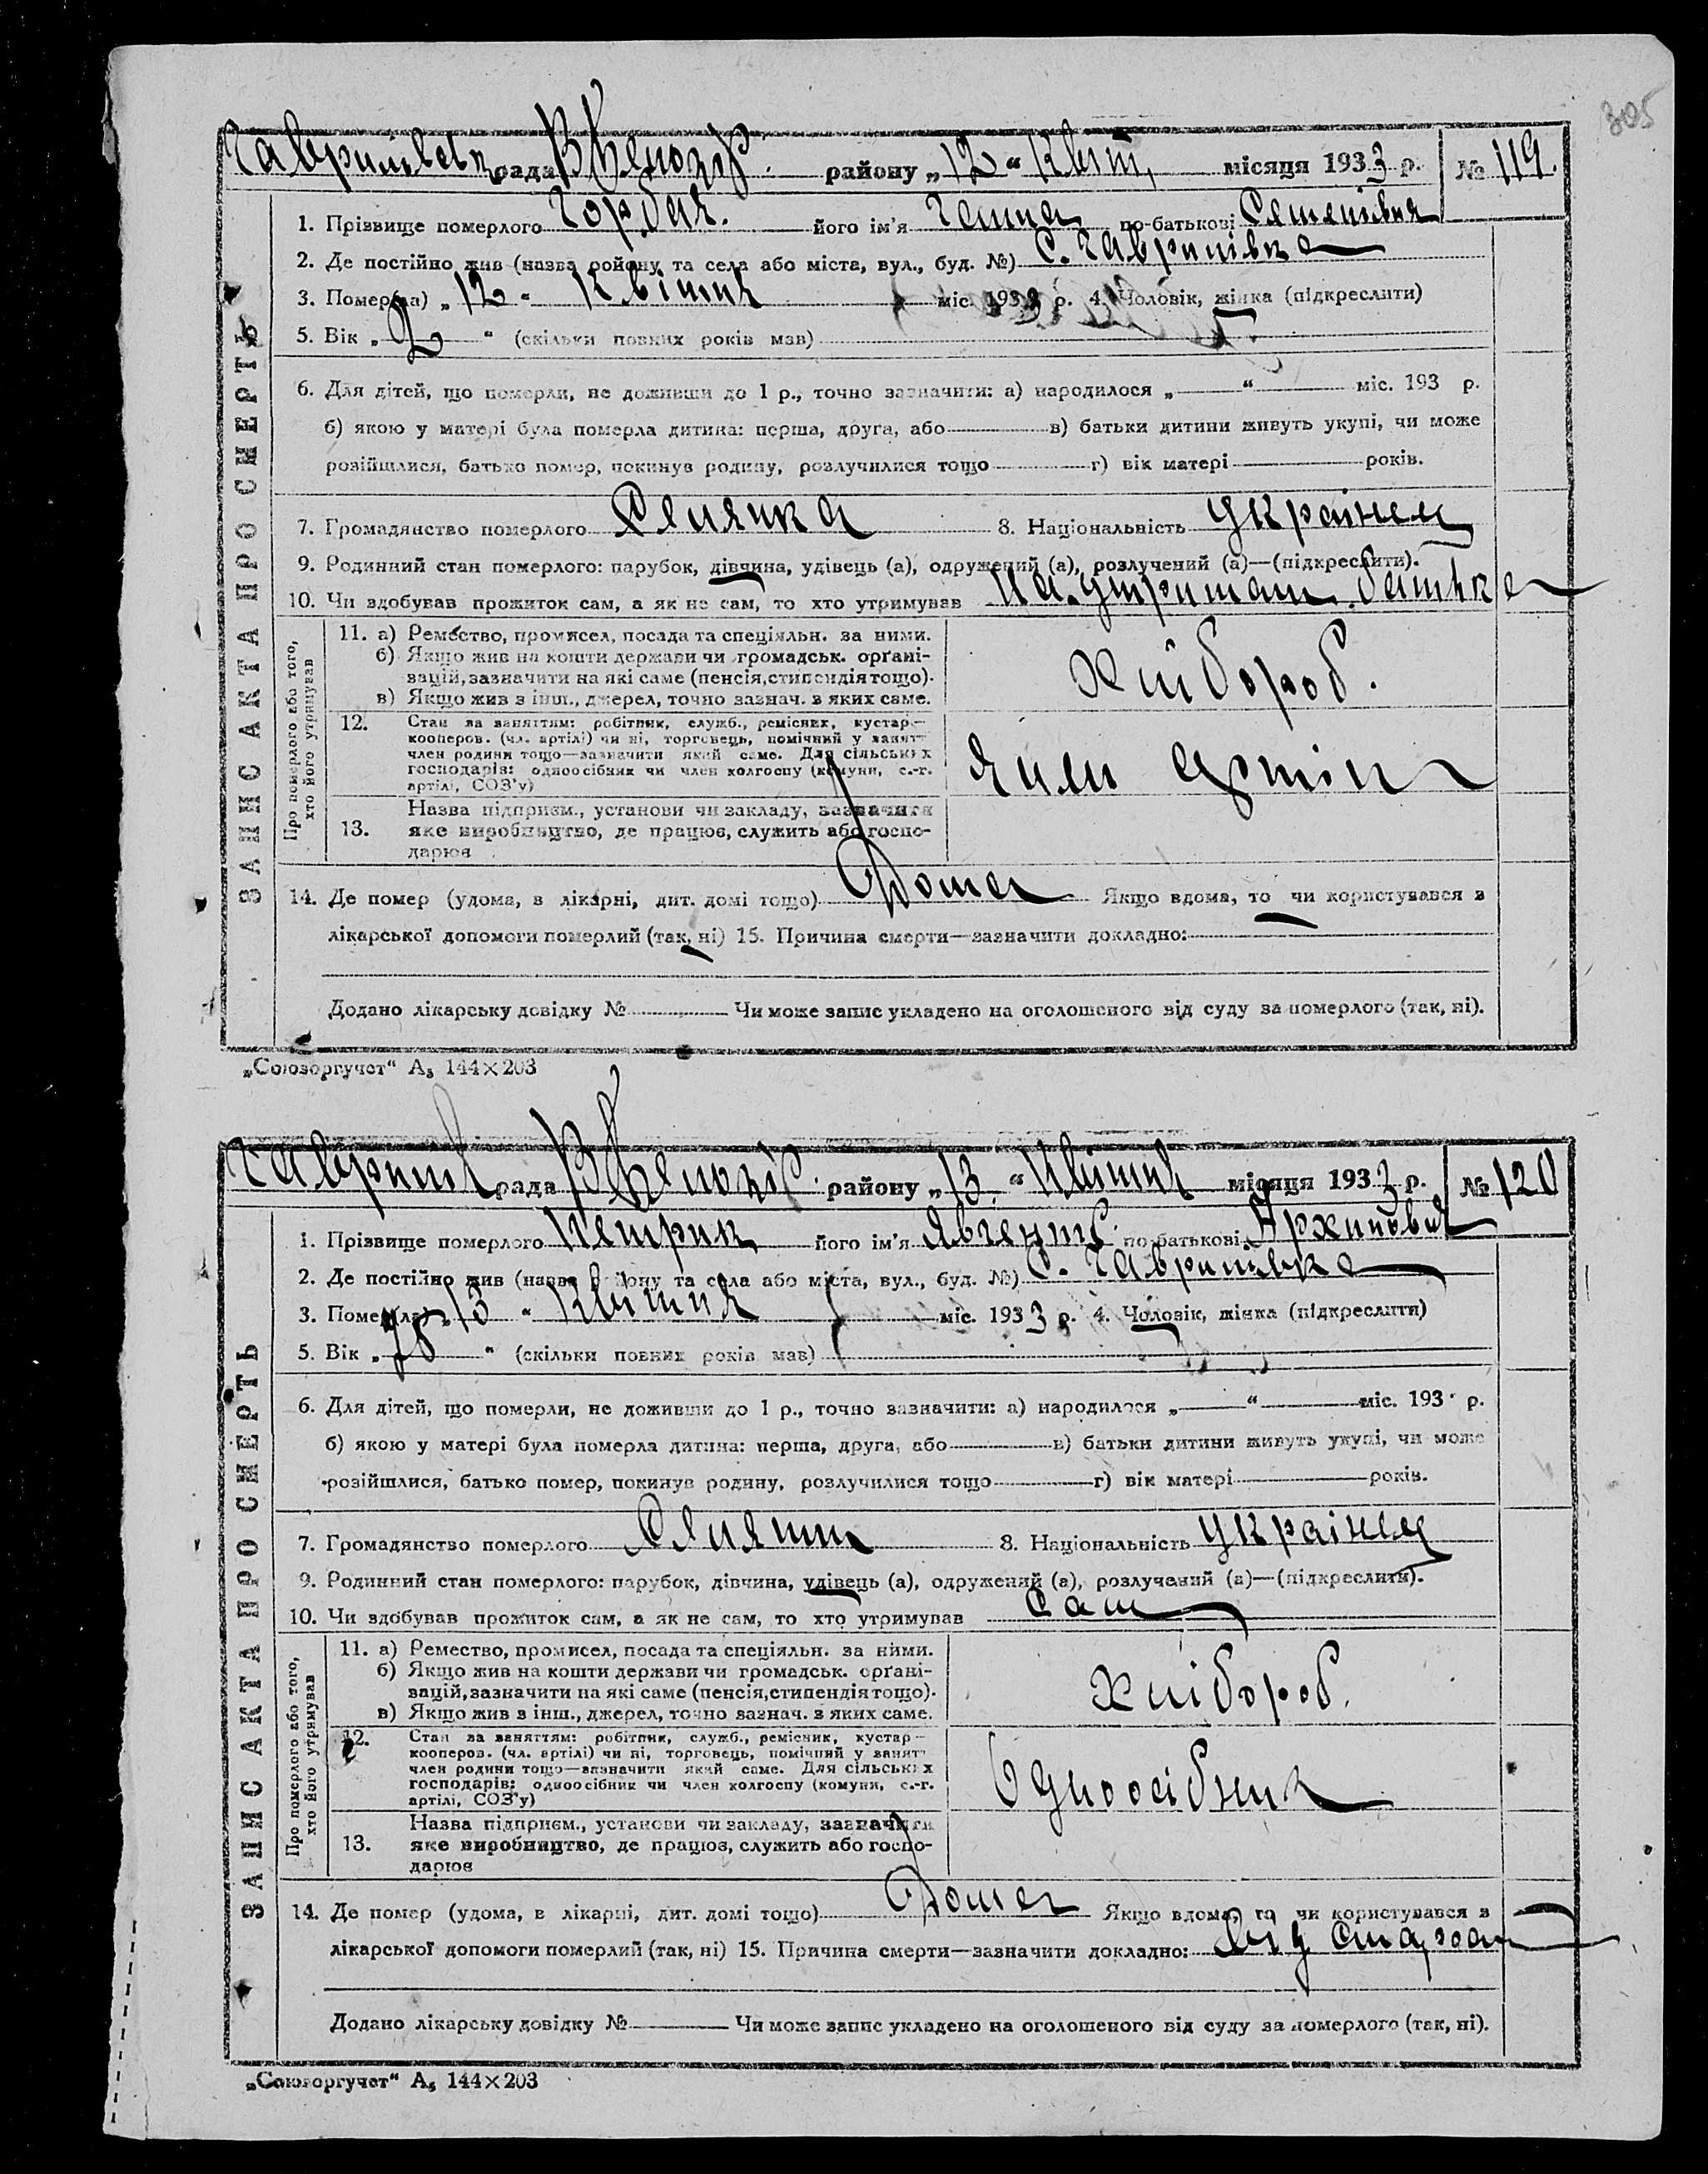 305
Гаврилівськ рада район у „12“ Квіт, місяця 1933 р. № 119.
ЗАПИС АКТА ПРО СМЕРТЬ
1. Прізвище померлого Горбач. його ім'я Ганна по-батькові
2. Де постійно жив (назва району та села або міста, вул., буд. №) С. Гаврилівка
3. Помер(ла) „12“ Квітня міс. 1933 р. 4. Чоловік, жінка (підкреслити)
5. Вік „2“ (скільки повних років мав)
6. Для дітей, що померли, не доживши до 1 р., точно зазначити: а) народилося „ “ міс. 193 р.
б) якою у матері була померла дитина: перша, друга, або в) батьки дитини живуть укупі, чи може
розійшлися, батько помер, покинув родину, розлучилися тощо г) вік матері років.
7. Громадянство померлого Селянка 8. Національність Украінец
9. Родинний стан померлого: парубок, дівчина, удівець (а), одружений (а), розлучений (а)—(підкреслити).
10. Чи здобував прожиток сам, а як не сам, то хто утримував На утриман. батька
Про померлого або того, хто його утримував
11. а) Ремество, промисел, посада та спеціяльн. за ними.
б) Якщо жив на кошти держави чи громадськ. орґані-
зацій, зазначити на які саме (пенсія, стипендія тощо).
в) Якщо жив з інш., джерел, точно зазнач. з яких саме.
Хлібороб.
12. Стан за заняттям: робітник, служб., ремісник, кустар—
кооперов. (чл. артілі) чи ні, торговець, помічний у занятт
член родини тощо—зазначити який саме. Для сільських
господарів: одноосібник чи член колгоспу (комуни, с.-г.
артілі, СОЗ'у)
Член артіл
13. Назва підприєм., установи чи закладу, зазначити
яке виробництво, де працює, служить або госпо-
дарює
14. Де помер (удома, в лікарні, дит. домі тощо) Дома Якщо вдома, то чи користувався з
лікарської допомоги померлий (так, ні) 15. Причина смерти—зазначити докладно:
Додано лікарську довідку № Чи може запис укладено на оголошеного від суду за померлого (так, ні).
„Союзоргучет“ А₅ 144×203
Гаврилів рада району „13“ Квітня місяця 1933 р. № 120
ЗАПИС АКТА ПРО СМЕРТЬ
1. Прізвище померлого Петрик його ім'я по-батькові Архипович
2. Де постійно жив (назва району та села або міста, вул., буд. №) С. Гаврилівка
3. Помер(ла) „13“ Квітня міс. 1933 р. 4. Чоловік, жінка (підкреслити)
5. Вік „ “ (скільки повних років мав)
6. Для дітей, що померли, не доживши до 1 р., точно зазначити: а) народилося „ “ міс. 193 р.
б) якою у матері була померла дитина: перша, друга, або в) батьки дитини живуть укупі, чи може
розійшлися, батько помер, покинув родину, розлучилися тощо г) вік матері років.
7. Громадянство померлого Селянин 8. Національність Украінец
9. Родинний стан померлого: парубок, дівчина, удівець (а), одружений (а), розлучений (а)—(підкреслити).
10. Чи здобував прожиток сам, а як не сам, то хто утримував Сам
Про померлого або того, хто його утримував
11. а) Ремество, промисел, посада та спеціяльн. за ними.
б) Якщо жив на кошти держави чи громадськ. орґані-
зацій, зазначити на які саме (пенсія, стипендія тощо).
в) Якщо жив з інш., джерел, точно зазнач. з яких саме.
Хлібороб.
12. Стан за заняттям: робітник, служб., ремісник, кустар—
кооперов. (чл. артілі) чи ні, торговець, помічний у занятт
член родини тощо—зазначити який саме. Для сільських
господарів: одноосібник чи член колгоспу (комуни, с.-г.
артілі, СОЗ'у)
Одноосібник
13. Назва підприєм., установи чи закладу, зазначити
яке виробництво, де працює, служить або госпо-
дарює
14. Де помер (удома, в лікарні, дит. домі тощо) Дома Якщо вдома, то чи користувався з
лікарської допомоги померлий (так, ні) 15. Причина смерти—зазначити докладно:
Додано лікарську довідку № Чи може запис укладено на оголошеного від суду за померлого (так, ні).
„Союзоргучет“ А₅ 144×203